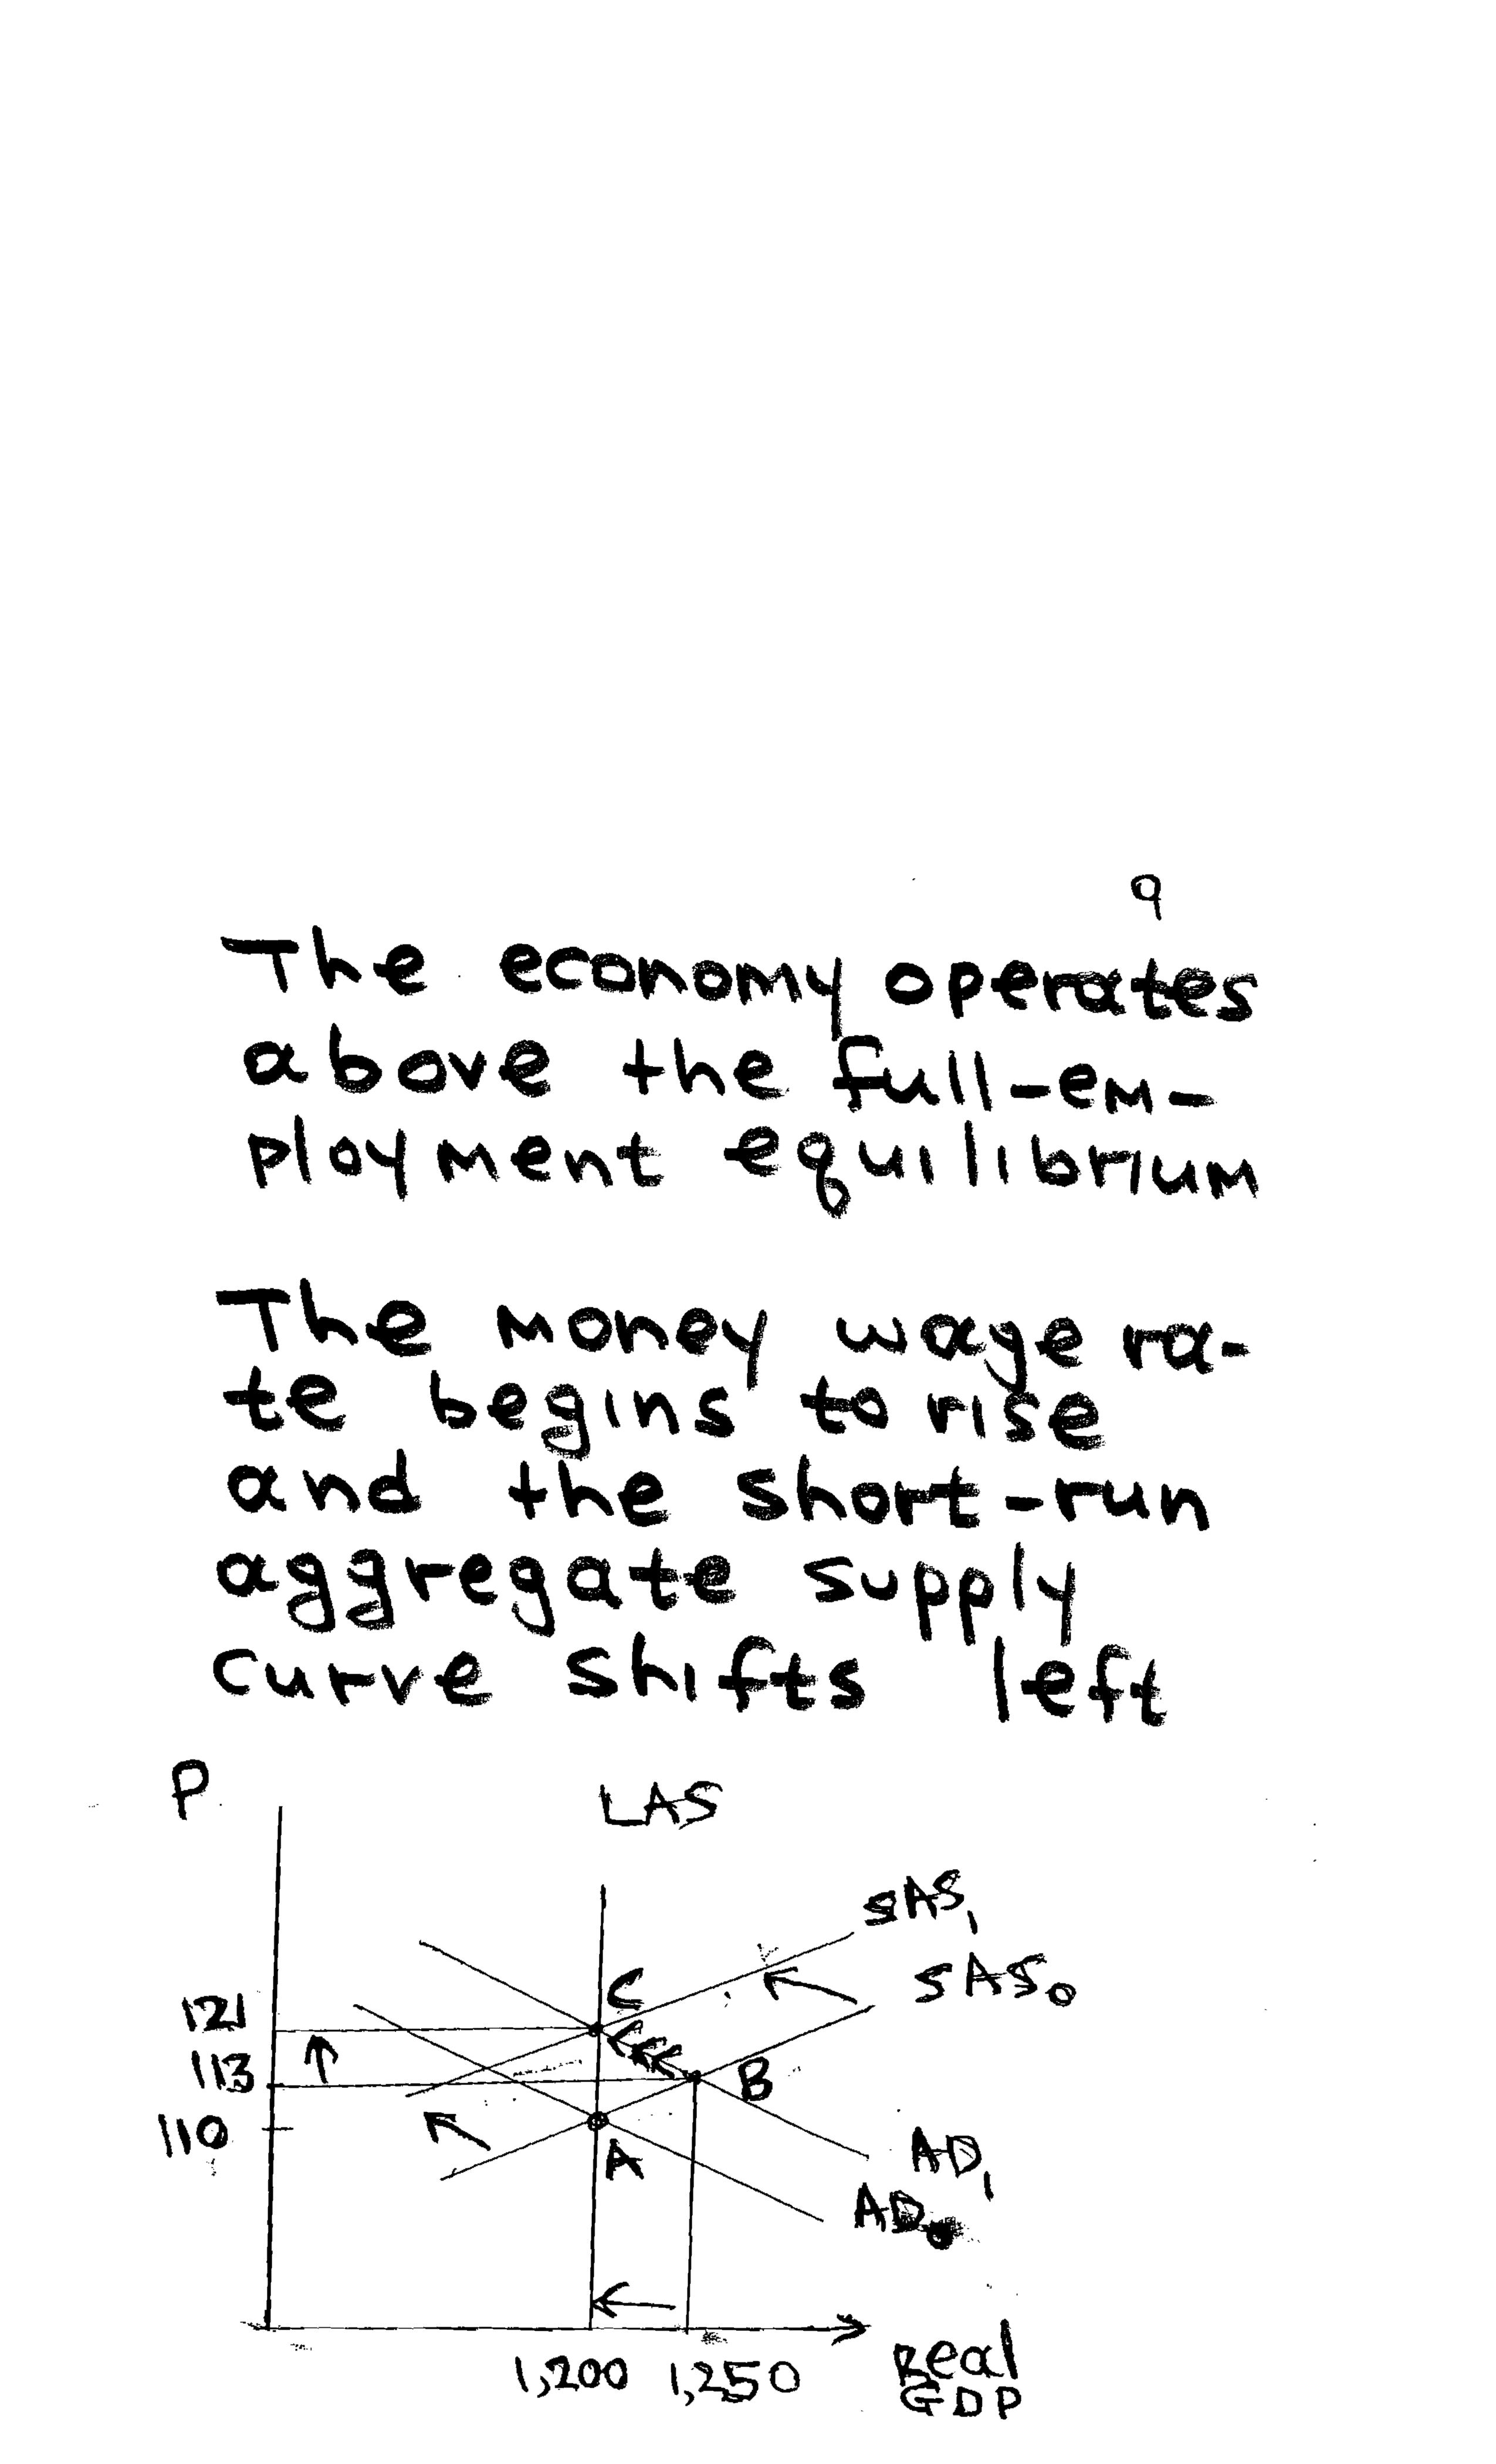 9
The economy operates
above the full-em-
ployment equilibrium
The money wage ra-
te begins to rise
and the short-run
aggregate supply
curve shifts left
P
LAS
SAS₁
SAS₀
C
121
113
B
110
A
AD₁
AD₀
1,200 1,250
Real
GDP